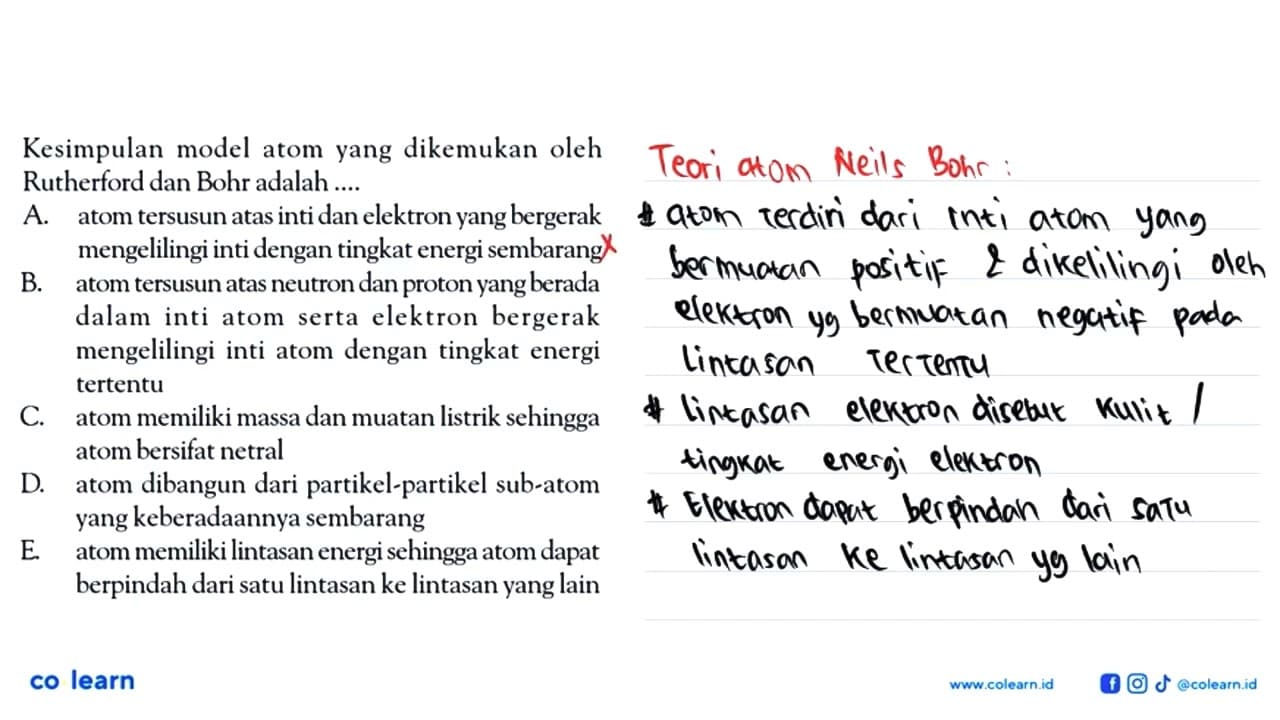 Kesimpulan model atom yang dikemukan oleh
Rutherford dan Bohr adalah ....
A. atom tersusun atas inti dan elektron yang bergerak
mengelilingi inti dengan tingkat energi sembarang X
B. atom tersusun atas neutron dan proton yang berada
dalam inti atom serta elektron bergerak
mengelilingi inti atom dengan tingkat energi
tertentu
C. atom memiliki massa dan muatan listrik sehingga
atom bersifat netral
D. atom dibangun dari partikel-partikel sub-atom
yang keberadaannya sembarang
E. atom memiliki lintasan energi sehingga atom dapat
berpindah dari satu lintasan ke lintasan yang lain
Teori atom Neils Bohr :
# atom terdiri dari inti atom yang
bermuatan positif & dikelilingi oleh
elektron yg bermuatan negatif pada
lintasan tertentu
# lintasan elektron disebut kulit /
tingkat energi elektron
# Elektron dapat berpindah dari satu
lintasan ke lintasan yg lain
co learn
www.colearn.id
@colearn.id